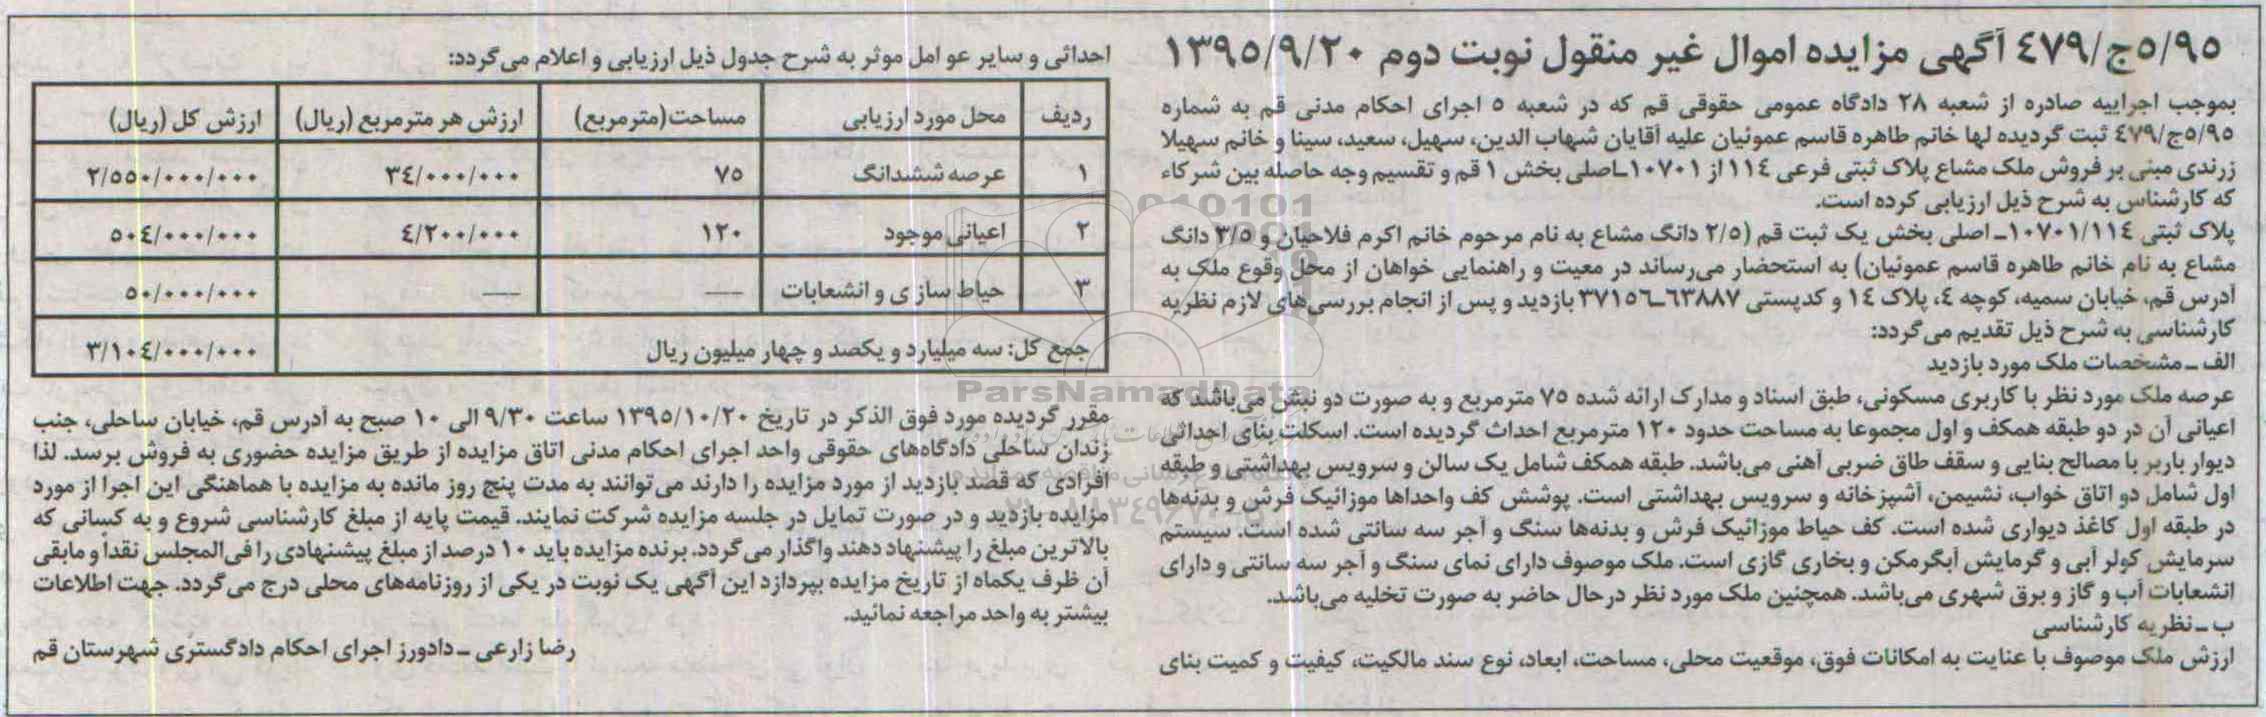 ۵/۹۵ج/۴۷۹ آگهی مزایده اموال غیر منقول نوبت دوم ۱۳۹۵/۹/۲۰
بموجب اجراییه صادره از شعبه ۲۸ دادگاه عمومی حقوقی قم که در شعبه ۵ اجرای احکام مدنی قم به شماره
۵/۹۵ج/۴۷۹ ثبت گردیده لها خانم طاهره قاسم عموئیان علیه آقایان شهاب الدین، سهیل، سعید، سینا و خانم سهیلا
زرندی مبنی بر فروش ملک مشاع پلاک ثبتی فرعی ۱۱۴ از ۱۰۷۰۱ـاصلی بخش ۱ قم و تقسیم وجه حاصله بین شرکاء
که کارشناس به شرح ذیل ارزیابی کرده است.
پلاک ثبتی ۱۰۷۰۱/۱۱۴ـ اصلی بخش یک ثبت قم (۲/۵ دانگ مشاع به نام مرحوم خانم اکرم فلاحیان و ۳/۵ دانگ
مشاع به نام خانم طاهره قاسم عموئیان) به استحضار می‌رساند در معیت و راهنمایی خواهان از محل وقوع ملک به
آدرس قم، خیابان سمیه، کوچه ۴، پلاک ۱۴ و کدپستی ۶۳۸۸۷ـ۳۷۱۵۶ بازدید و پس از انجام بررسی‌های لازم نظریه
کارشناسی به شرح ذیل تقدیم می‌گردد:
الف ـ مشخصات ملک مورد بازدید
عرصه ملک مورد نظر با کاربری مسکونی، طبق اسناد و مدارک ارائه شده ۷۵ مترمربع و به صورت دو نبش می‌باشد که
اعیانی آن در دو طبقه همکف و اول مجموعا به مساحت حدود ۱۲۰ مترمربع احداث گردیده است. اسکلت بنای احداثی
دیوار باربر با مصالح بنایی و سقف طاق ضربی آهنی می‌باشد. طبقه همکف شامل یک سالن و سرویس بهداشتی و طبقه
اول شامل دو اتاق خواب، نشیمن، آشپزخانه و سرویس بهداشتی است. پوشش کف واحداها موزائیک فرش و بدنه‌ها
در طبقه اول کاغذ دیواری شده است. کف حیاط موزائیک فرش و بدنه‌ها سنگ و آجر سه سانتی شده است. سیستم
سرمایش کولر آبی و گرمایش آبگرمکن و بخاری گازی است. ملک موصوف دارای نمای سنگ و آجر سه سانتی و دارای
انشعابات آب و گاز و برق شهری می‌باشد. همچنین ملک مورد نظر درحال حاضر به صورت تخلیه می‌باشد.
ب ـ نظریه کارشناسی
ارزش ملک موصوف با عنایت به امکانات فوق، موقعیت محلی، مساحت، ابعاد، نوع سند مالکیت، کیفیت و کمیت بنای
احداثی و سایر عوامل موثر به شرح جدول ذیل ارزیابی و اعلام می‌گردد:
ردیف محل مورد ارزیابی مساحت(مترمربع) ارزش هر مترمربع (ریال) ارزش کل (ریال)
۱ عرصه ششدانگ ۷۵ ۳۴/۰۰۰/۰۰۰ ۲/۵۵۰/۰۰۰/۰۰۰
۲ اعیانی موجود ۱۲۰ ۴/۲۰۰/۰۰۰ ۵۰۴/۰۰۰/۰۰۰
۳ حیاط سازی و انشعابات — — ۵۰/۰۰۰/۰۰۰
جمع کل: سه میلیارد و یکصد و چهار میلیون ریال ۳/۱۰۴/۰۰۰/۰۰۰
مقرر گردیده مورد فوق الذکر در تاریخ ۱۳۹۵/۱۰/۲۰ ساعت ۹/۳۰ الی ۱۰ صبح به آدرس قم، خیابان ساحلی، جنب
زندان ساحلی دادگاه‌های حقوقی واحد اجرای احکام مدنی اتاق مزایده از طریق مزایده حضوری به فروش برسد. لذا
افرادی که قصد بازدید از مورد مزایده را دارند می‌توانند به مدت پنج روز مانده به مزایده با هماهنگی این اجرا از مورد
مزایده بازدید و در صورت تمایل در جلسه مزایده شرکت نمایند. قیمت پایه از مبلغ کارشناسی شروع و به کسانی که
بالاترین مبلغ را پیشنهاد دهند واگذار می‌گردد. برنده مزایده باید ۱۰ درصد از مبلغ پیشنهادی را فی‌المجلس نقداً و مابقی
آن ظرف یکماه از تاریخ مزایده بپردازد این آگهی یک نوبت در یکی از روزنامه‌های محلی درج می‌گردد. جهت اطلاعات
بیشتر به واحد مراجعه نمائید.
رضا زارعی ـ دادورز اجرای احکام دادگستری شهرستان قم
ParsNamadData